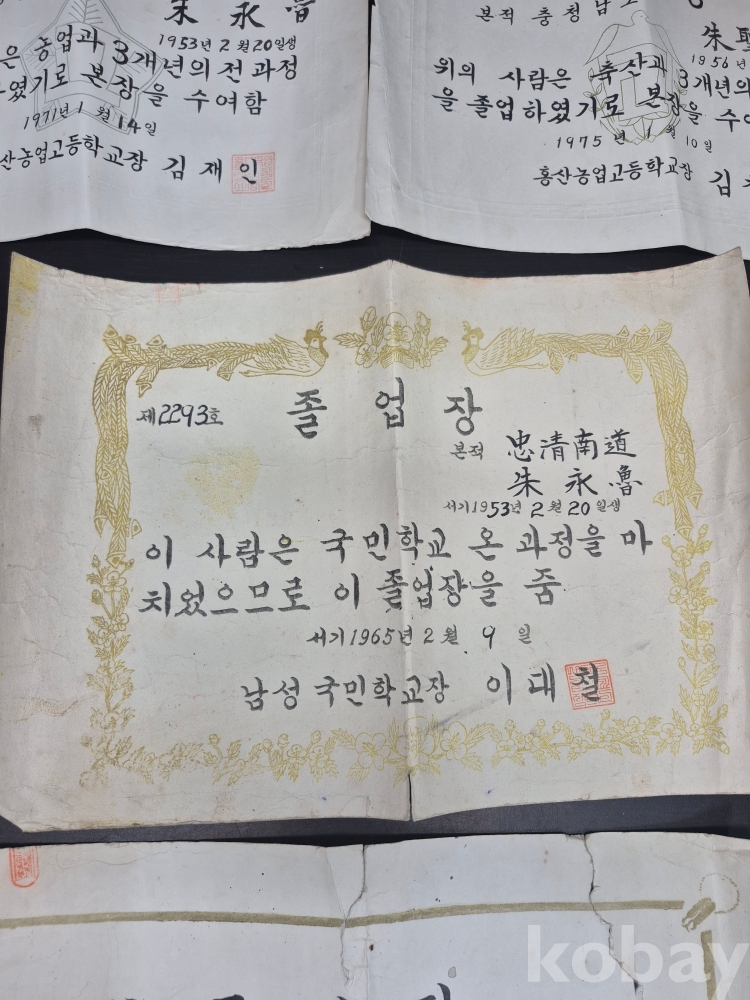 朱永魯
1953년 2월 20일생
은 농업과 3개년의 전과정
였기로 본장을 수여함
1971년 1월 14일
산농업고등학교장 김재인
본적 충청남도
朱聖
1956년
위의 사람은 축산과 3개년의
을 졸업하였기로 본장을 수여
1975년 1월 10일
홍산농업고등학교장 김
제2293호
졸업장
본적 忠清南道
朱永魯
서기1953년 2월 20일생
이 사람은 국민학교 온 과정을 마
치었으므로 이 졸업장을 줌
서기1965년 2월 9일
남성국민학교장 이대철
kobay